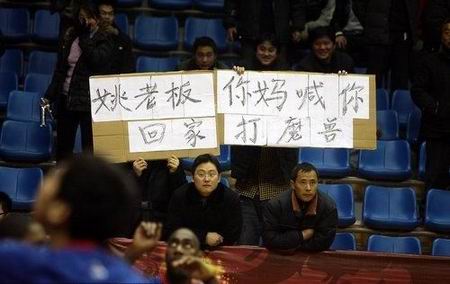 姚老板 你妈喊你
回家 打魔兽